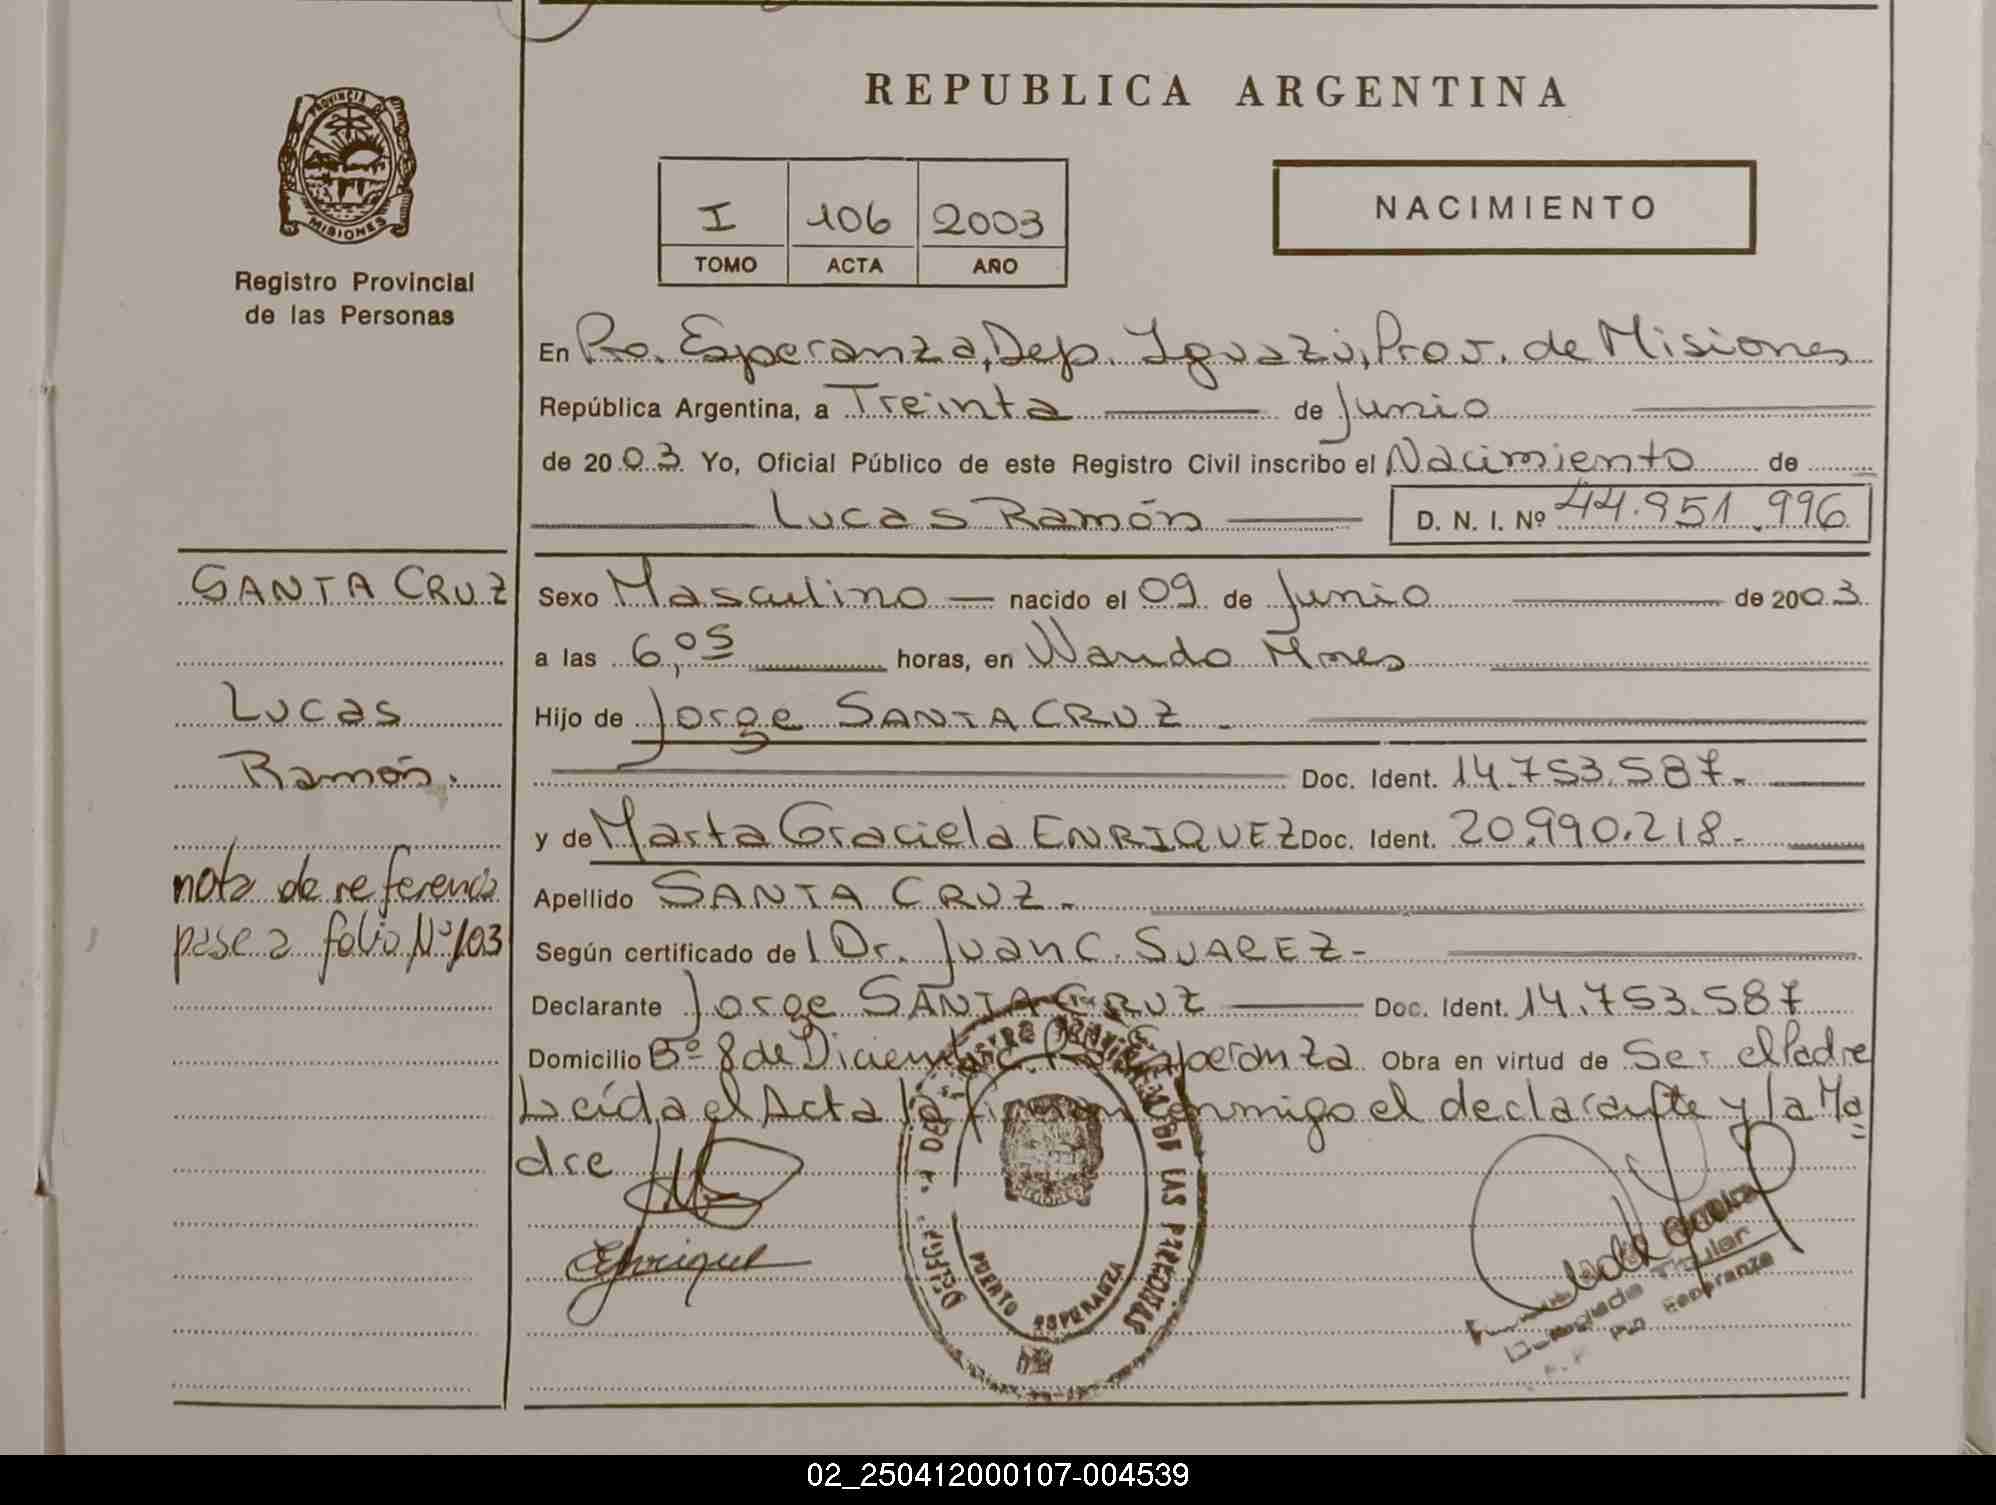 REPUBLICA ARGENTINA
PROVINCIA DE
MISIONES
Registro Provincial
de las Personas
I 106 2003
TOMO ACTA AÑO
NACIMIENTO
En Pto. Esperanza, Dep. Iguazú, Prov. de Misiones
República Argentina, a Treinta de Junio
de 2003 Yo, Oficial Público de este Registro Civil inscribo el Nacimiento de
Lucas Ramón D. N. I. Nº 44.951.996
SANTA CRUZ
Lucas
Ramón.
nota de referencia
pase a folio Nº 103
Sexo Masculino nacido el 09 de Junio de 2003
a las 6,05 horas, en Wanda Mnes
Hijo de Jorge SANTA CRUZ
Doc. Ident. 14.753.587-
y de Marta Graciela ENRIQUEZ Doc. Ident. 20.990.218-
Apellido SANTA CRUZ-
Según certificado de l Dr. Juan C. SUAREZ-
Declarante Jorge SANTA CRUZ Doc. Ident. 14.753.587
Domicilio Bº 8 de Diciembre Pto Esperanza Obra en virtud de Ser el Padre
Leída el Acta la firman conmigo el declarante y la Ma
dre
Enriquez
DE LAS PERSONAS
PUERTO ESPERANZA
Delegada Titular
Pto Esperanza
02_250412000107-004539